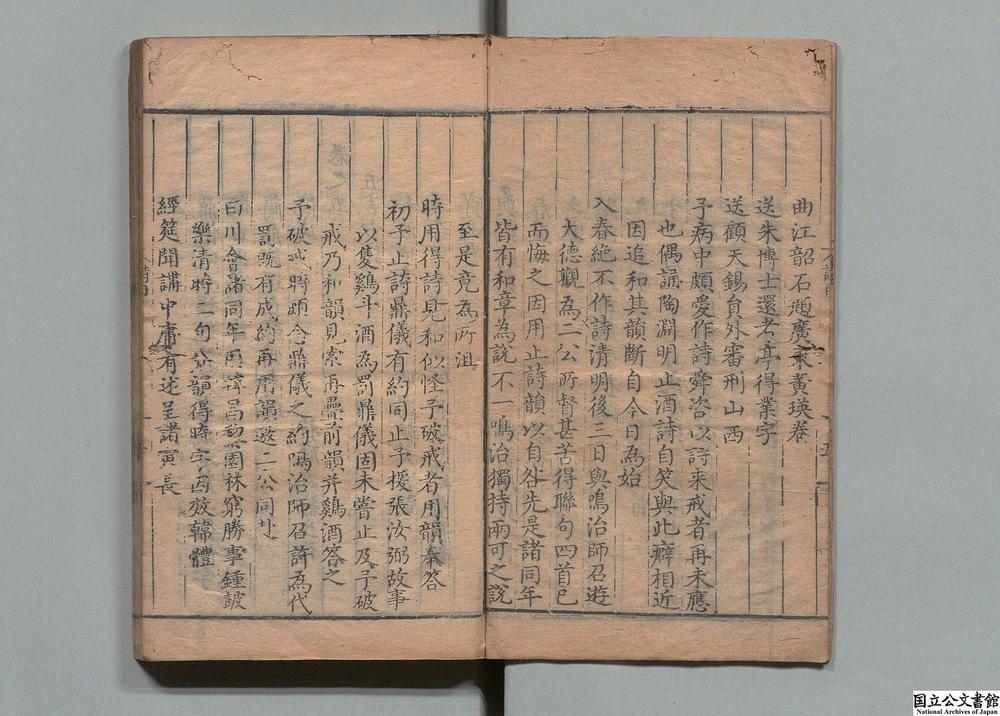 曲江韶石題廣東黃瑛卷
送朱博士還考亭得業字
送顧天錫員外審刑山西
予病中頗愛作詩舜咨以詩來戒者再未應
也偶誦陶淵明止酒詩自笑與此癖相近
因追和其韻斷自今日為始
入春絶不作詩清明後三日與鳴治師召遊
大德觀為二公所督甚苦得聯句四首已
而悔之因用止詩韻以自咎先是諸同年
皆有和章為說不一鳴治獨持兩可之說
至是竟為所沮
時用得詩見和似怪予破戒者用韻奉答
初予止詩鼎儀有約同止予援張汝弼故事
以隻鷄斗酒為罰鼎儀固未嘗止及予破
戒乃和韻見索再疊前韻并鷄酒答之
予破戒時頗念鼎儀之約鳴治師召許為代
罰既有成約再用韻邀二公同
曰川會諸同年用韓昌黎園林窮勝事鍾鼓
樂清時二句分韻得時字因效韓體
經筵聞講中庸有述呈諸寅長
国立公文書館
National Archives of Japan